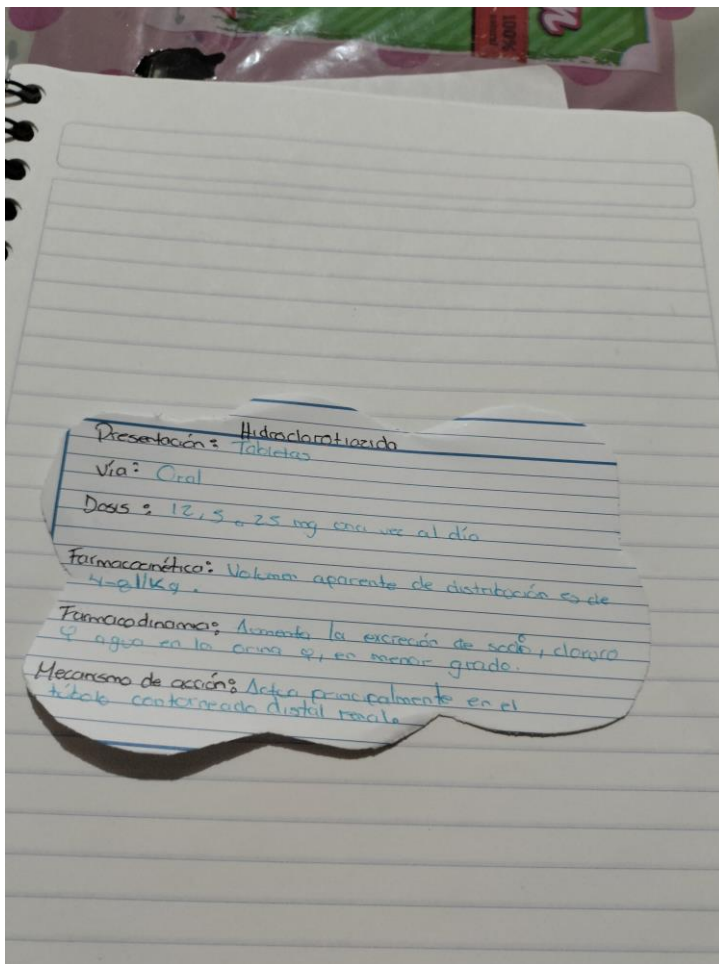 100%
Hidroclorotiazida
Presentación: Tabletas
Vía: Oral
Dosis: 12,5 o 25 mg una vez al día
Farmacocinética: Volumen aparente de distribución es de
4-8l/Kg.
Farmacodinamia: Aumenta la excreción de sodio, cloruro
y agua en la orina y, en menor grado.
Mecanismo de acción: Actua principalmente en el
túbulo contorneado distal renal.